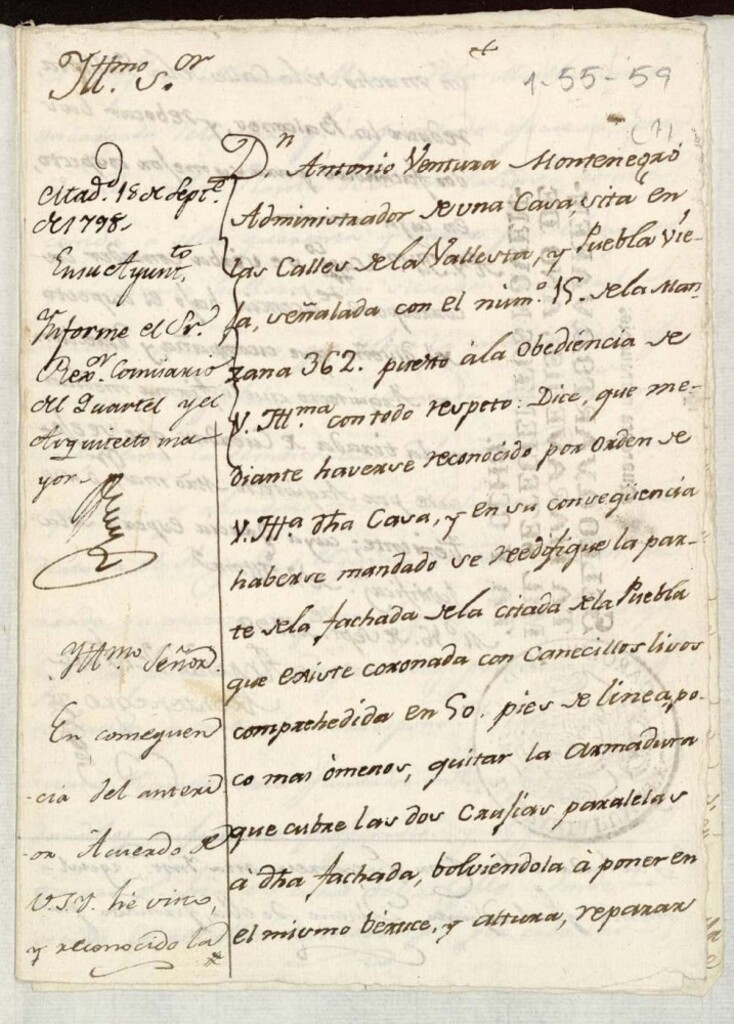 Yllmo. S.or
1-55-59
(1)
Mad.d 18 de Sept.e
de 1798.
En su Ayunt.to
Informe el Sr.
Rex.or Comisario
del Quartel y el
Arquitecto ma-
yor.
Yllmo. Señor.
En conseqüen
cia del anteri
or Acuerdo de
V.S.Y. hé visto,
y reconocido la
D.n Antonio Ventura Montenegro
Administrador de una Casa, sita en
las Calles de la Vallesta, y Puebla Vie-
ja, señalada con el núm.o 15. de la Man-
zana 362. puesto à la Obediéncia de
V. Yll.ma con todo respeto: Dice, que me-
diante haverse reconocido por orden de
V. Yll.a dha Casa, y en su conseqüencia
haberse mandado se reedifique la par-
te de la fachada de la citada de la Puebla
que existe coronada con Canecillos lisos
comprehedida en 50. pies de linea, po-
co mas ómenos, quitar la Armadura
que cubre las dos Crusias paralelas
à dha fachada, bolviendola à poner en
el mismo bértice, y altura, reparar